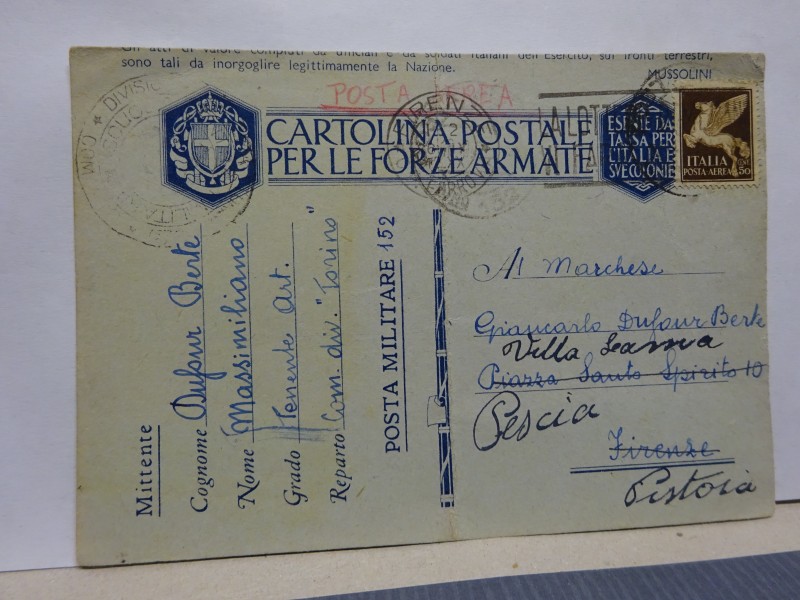 Gli atti di valore compiuti da ufficiali e da soldati italiani dell'Esercito, sui fronti terrestri,
sono tali da inorgoglire legittimamente la Nazione.
MUSSOLINI
POSTA AEREA
CARTOLINA POSTALE
PER LE FORZE ARMATE
ESENTE DA
TASSA PER
L'ITALIA E
SVE COLONIE
ITALIA
POSTA AEREA
CENT 50
LA LOTT
COM
DIVISIO
Mittente
Cognome Dufour Berte
Nome Massimiliano
Grado Tenente Art.
Reparto Com. div. "Torino"
POSTA MILITARE 152
Al Marchese
Giancarlo Dufour Berte
Villa
Piazza Santo Spirito 10
Pescia
Firenze
Pistoia